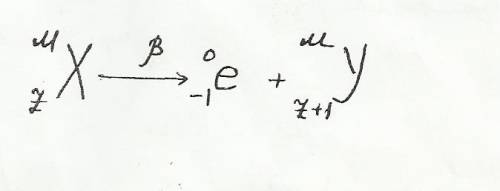 ᴹ_Z X —β→ ⁰_₋₁ e + ᴹ_Z+1 Y